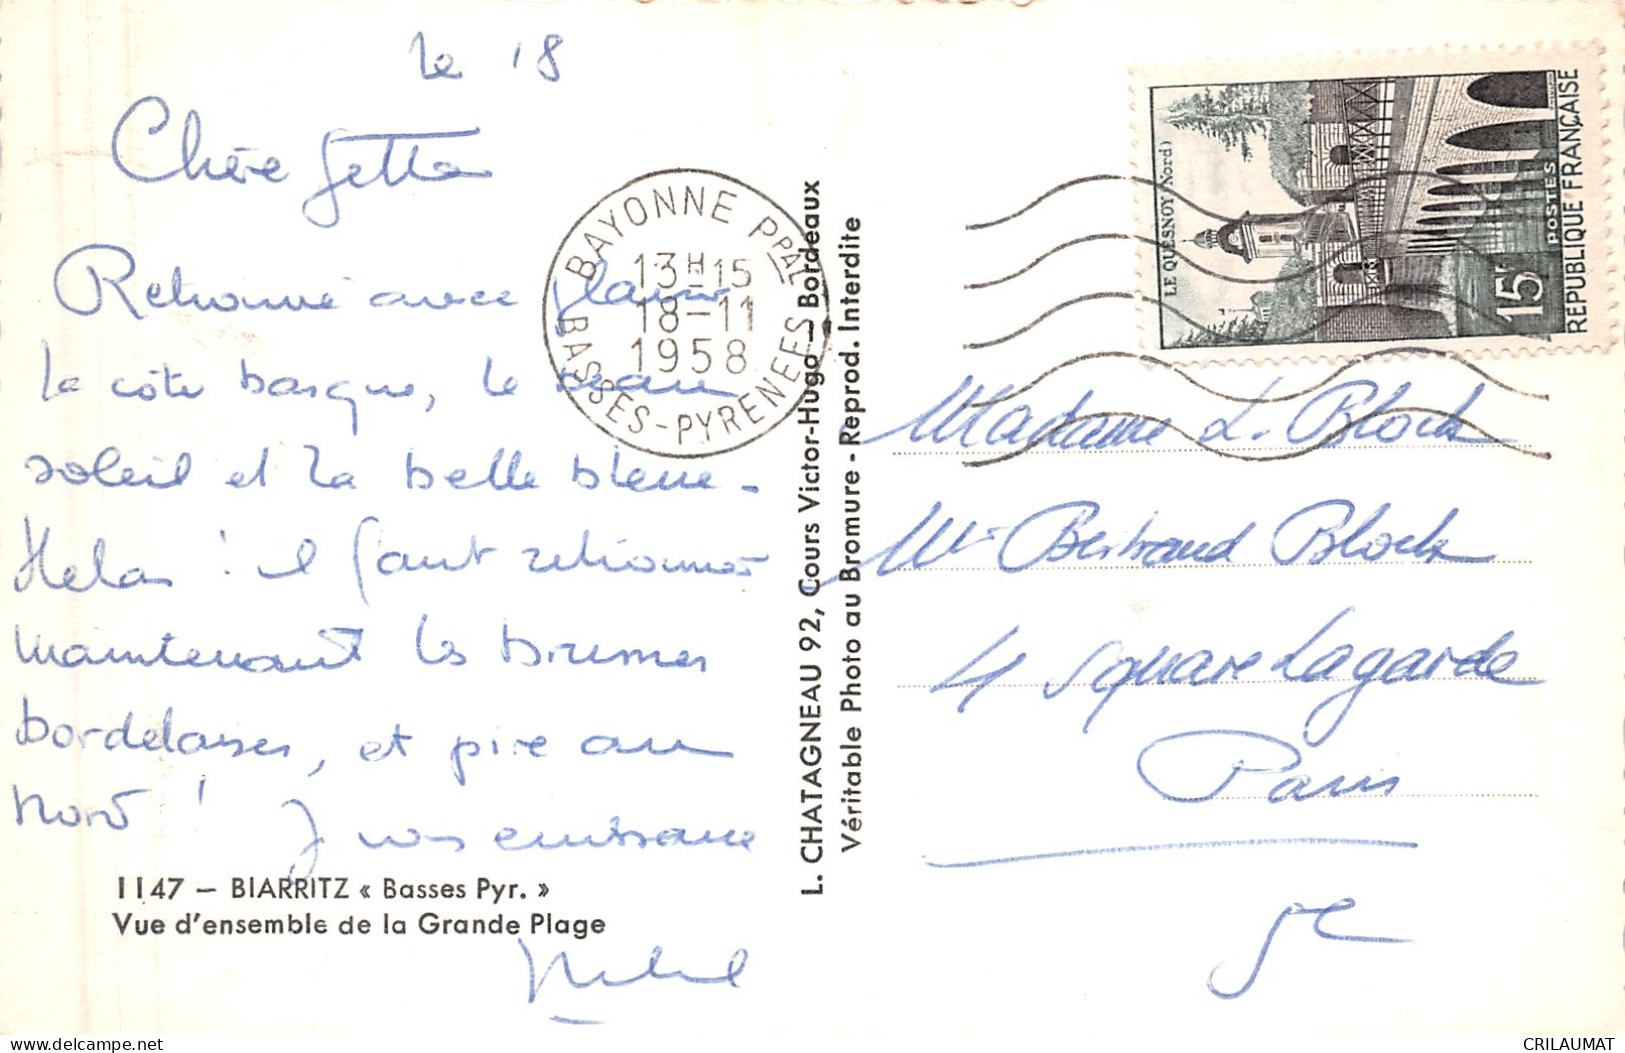 le 18
Chère Jetta
Retrouvé avec plaisir
la côte basque, le beau
soleil et la belle bleue.
Helas ! il faut retrouver
maintenant les brumes
bordelaises, et pire au
Nord ! Je vous embrasse
Michel
1147 – BIARRITZ « Basses Pyr. »
Vue d'ensemble de la Grande Plage
BAYONNE PPAL
13H-15
18-11
1958
BASSES-PYRENEES
L. CHATAGNEAU 92, Cours Victor-Hugo – Bordeaux
Véritable Photo au Bromure - Reprod. Interdite
LE QUESNOY (Nord)
15F
POSTES
REPUBLIQUE FRANÇAISE
Madame L. Block
Mr Bertrand Block
4 Square Lagarde
Paris
5e
delcampe.net
CRILAUMAT